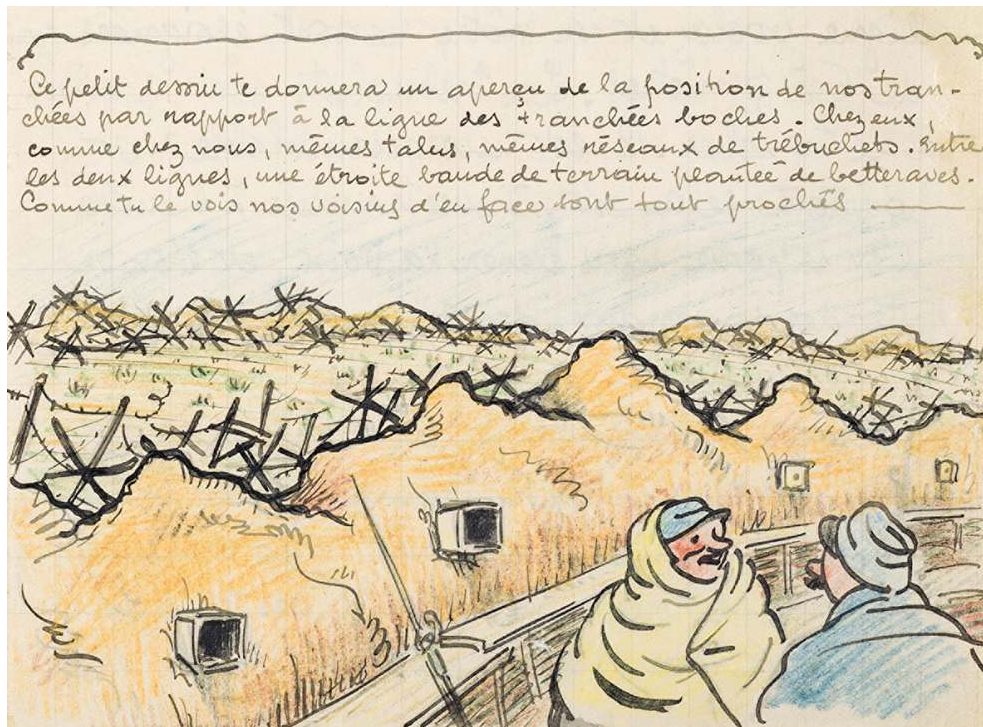 Ce petit dessin te donnera un aperçu de la position de nos tran-
chées par rapport à la ligne des tranchées boches. Chez eux,
comme chez nous, mêmes talus, mêmes réseaux de trébuchets. Entre
les deux lignes, une étroite bande de terrain plantée de betteraves.
Comme tu le vois nos voisins d'en face sont tout prochés